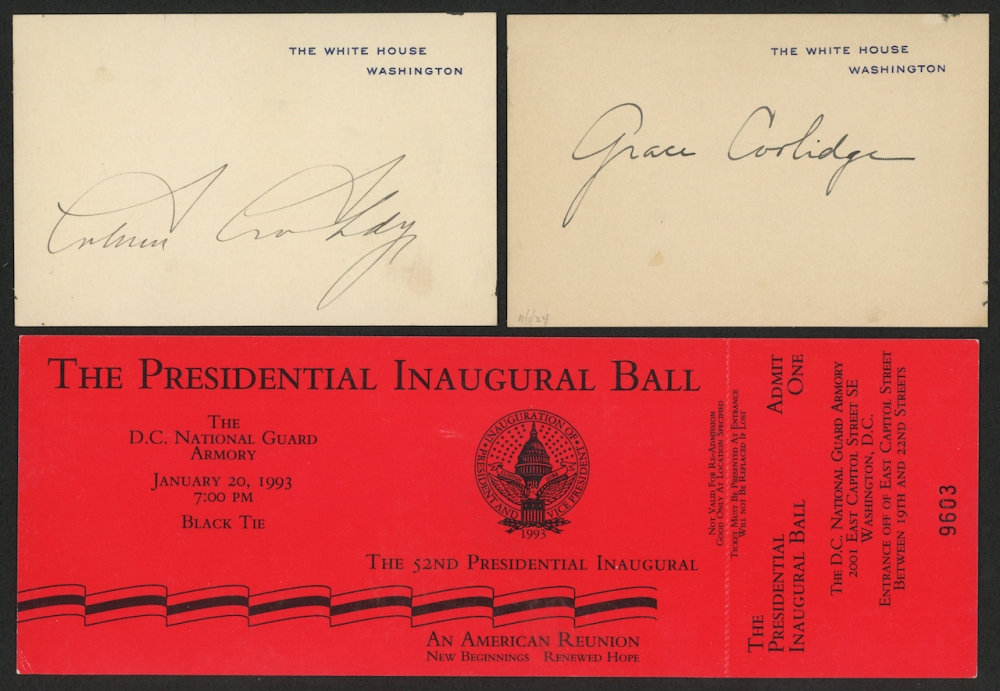 THE WHITE HOUSE
WASHINGTON
Calvin Coolidge
THE WHITE HOUSE
WASHINGTON
Grace Coolidge
11/1/24
THE PRESIDENTIAL INAUGURAL BALL
THE
D.C. NATIONAL GUARD
ARMORY
JANUARY 20, 1993
7:00 PM
BLACK TIE
INAUGURATION OF PRESIDENT AND VICE PRESIDENT
1993
THE 52ND PRESIDENTIAL INAUGURAL
AN AMERICAN REUNION
NEW BEGINNINGS RENEWED HOPE
NOT VALID FOR RE-ADMISSION
GOOD ONLY AT LOCATION SPECIFIED
TICKET MUST BE PRESENTED AT ENTRANCE
WILL NOT BE REPLACED IF LOST
THE
PRESIDENTIAL
INAUGURAL BALL
ADMIT
ONE
THE D.C. NATIONAL GUARD ARMORY
2001 EAST CAPITOL STREET SE
WASHINGTON, D.C.
ENTRANCE OFF OF EAST CAPITOL STREET
BETWEEN 19TH AND 22ND STREETS
9603